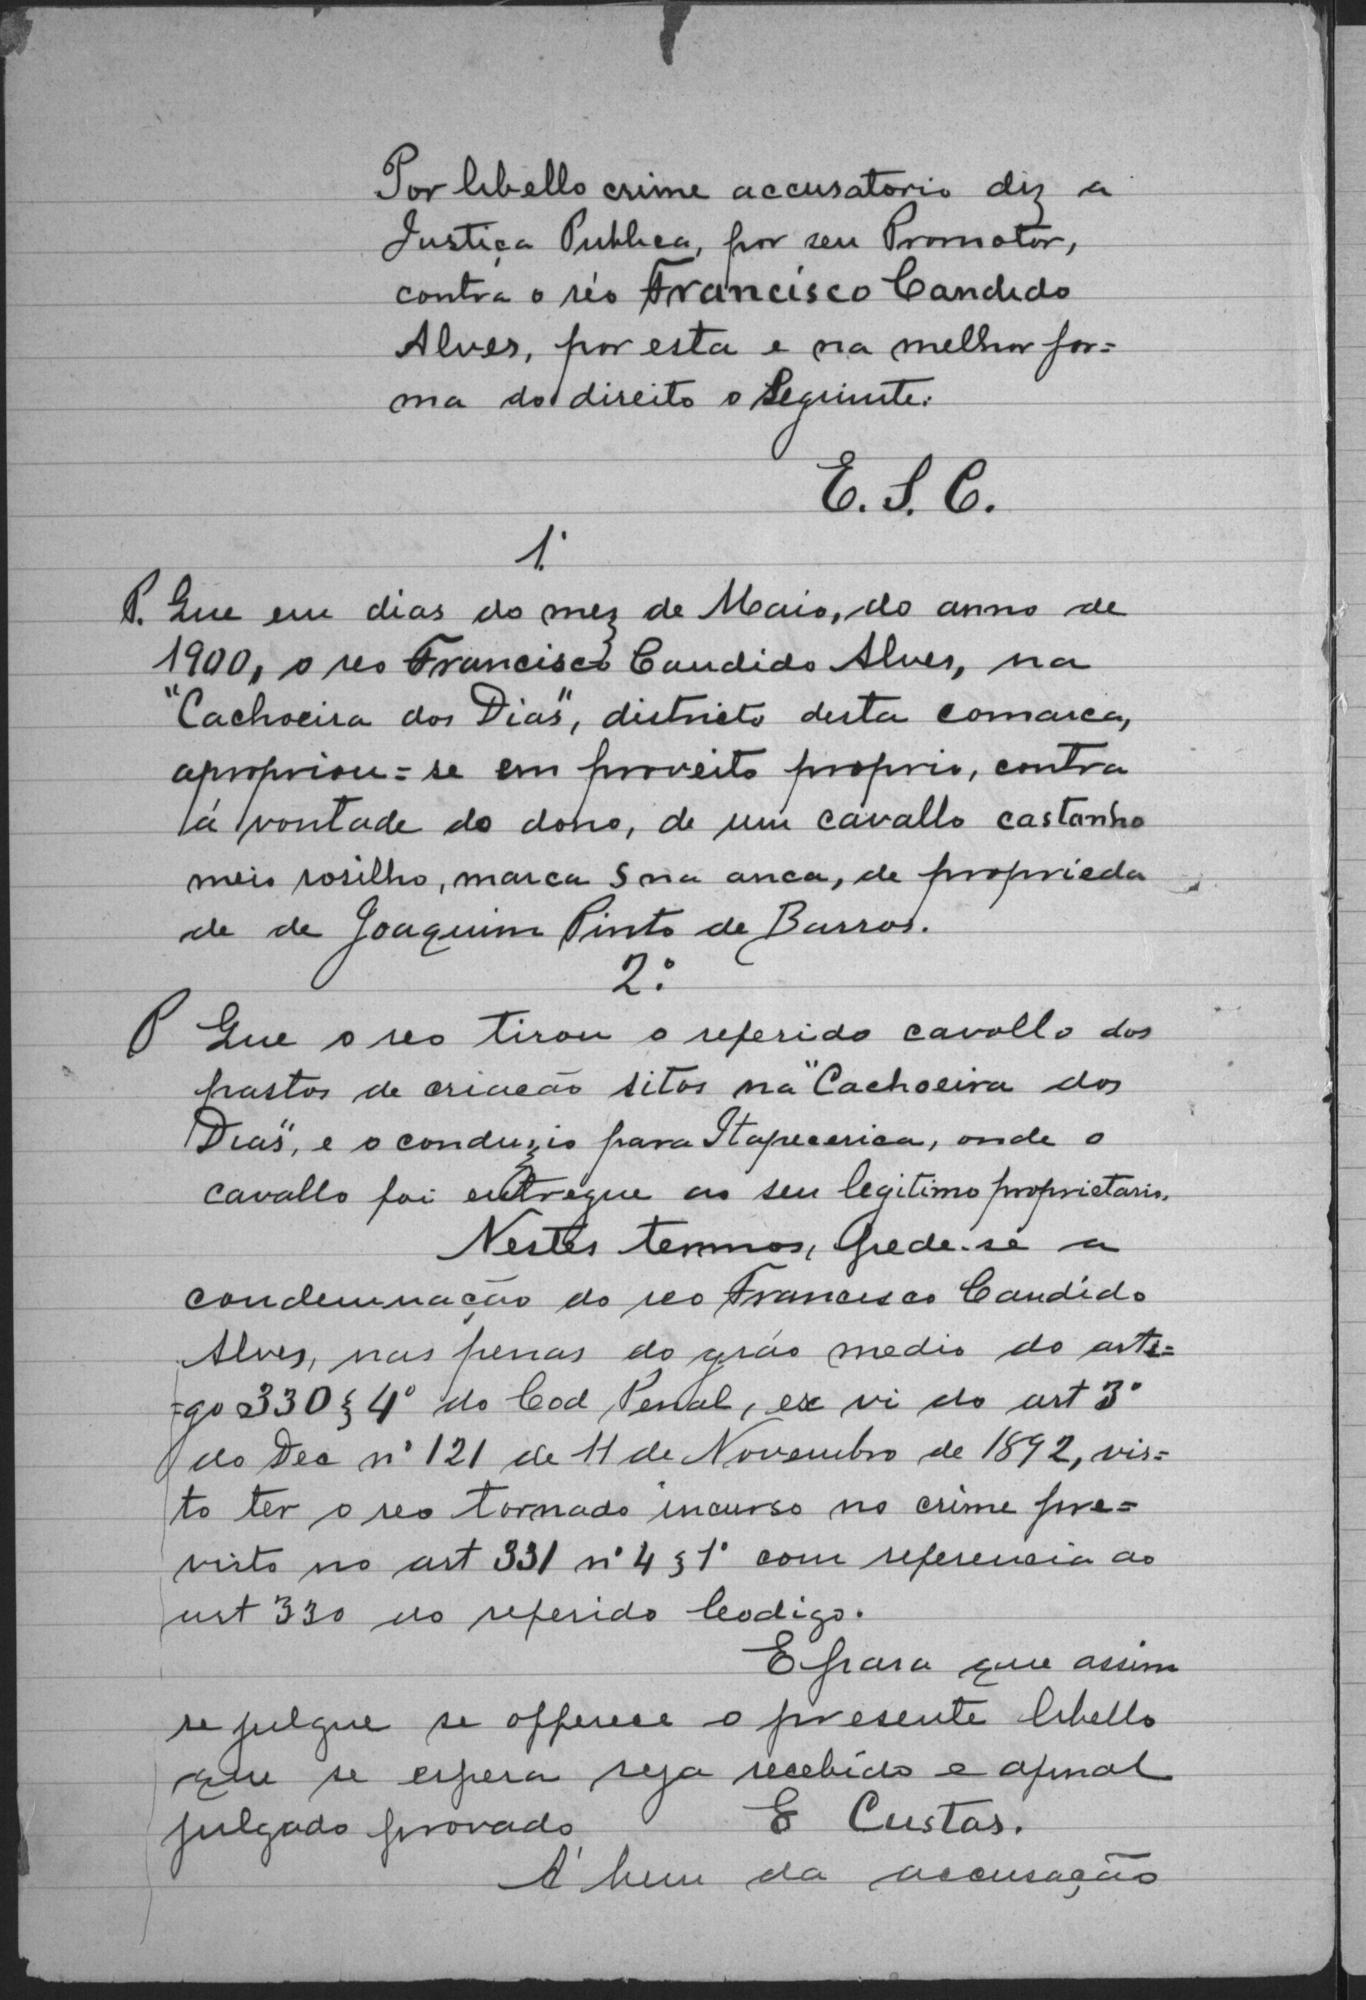 Por libello crime accusatorio diz a
Justiça Publica, por seu Promotor,
contra o réo Francisco Candido
Alves, por esta e na melhor for=
ma do direito o seguinte:
E. S. C.
1º
P. Que em dias do mez de Maio, do anno de
1900, o reo Francisco Candido Alves, na
"Cachoeira dos Dias", districto desta comarca,
apropriou=se em proveito proprio, contra
á vontade do dono, de um cavallo castanho
meio rosilho, marca S na anca, de proprieda
de de Joaquim Pinto de Barros.
2º
P Que o reo tirou o referido cavallo dos
pastos de criacão sitos na "Cachoeira dos
Dias", e o conduzio para Itapecerica, onde o
cavallo foi entregue ao seu legitimo proprietario.
Nestes termos, pede-se a
condemnação do reo Francisco Candido
Alves, nas penas do gráo medio do arti=
=go 330 § 4º do Cod Penal, ex vi do art 3º
do Dec nº 121 de 11 de Novembro de 1892, vis=
to ter o reo tornado incurso no crime pre=
visto no art 331 nº 4 § 1º com referencia ao
art 330 do referido Codigo.
E para que assim
se julgue se offerece o presente libello
que se espera seja recebido e afinal
julgado provado E Custas.
A' bem da accusação